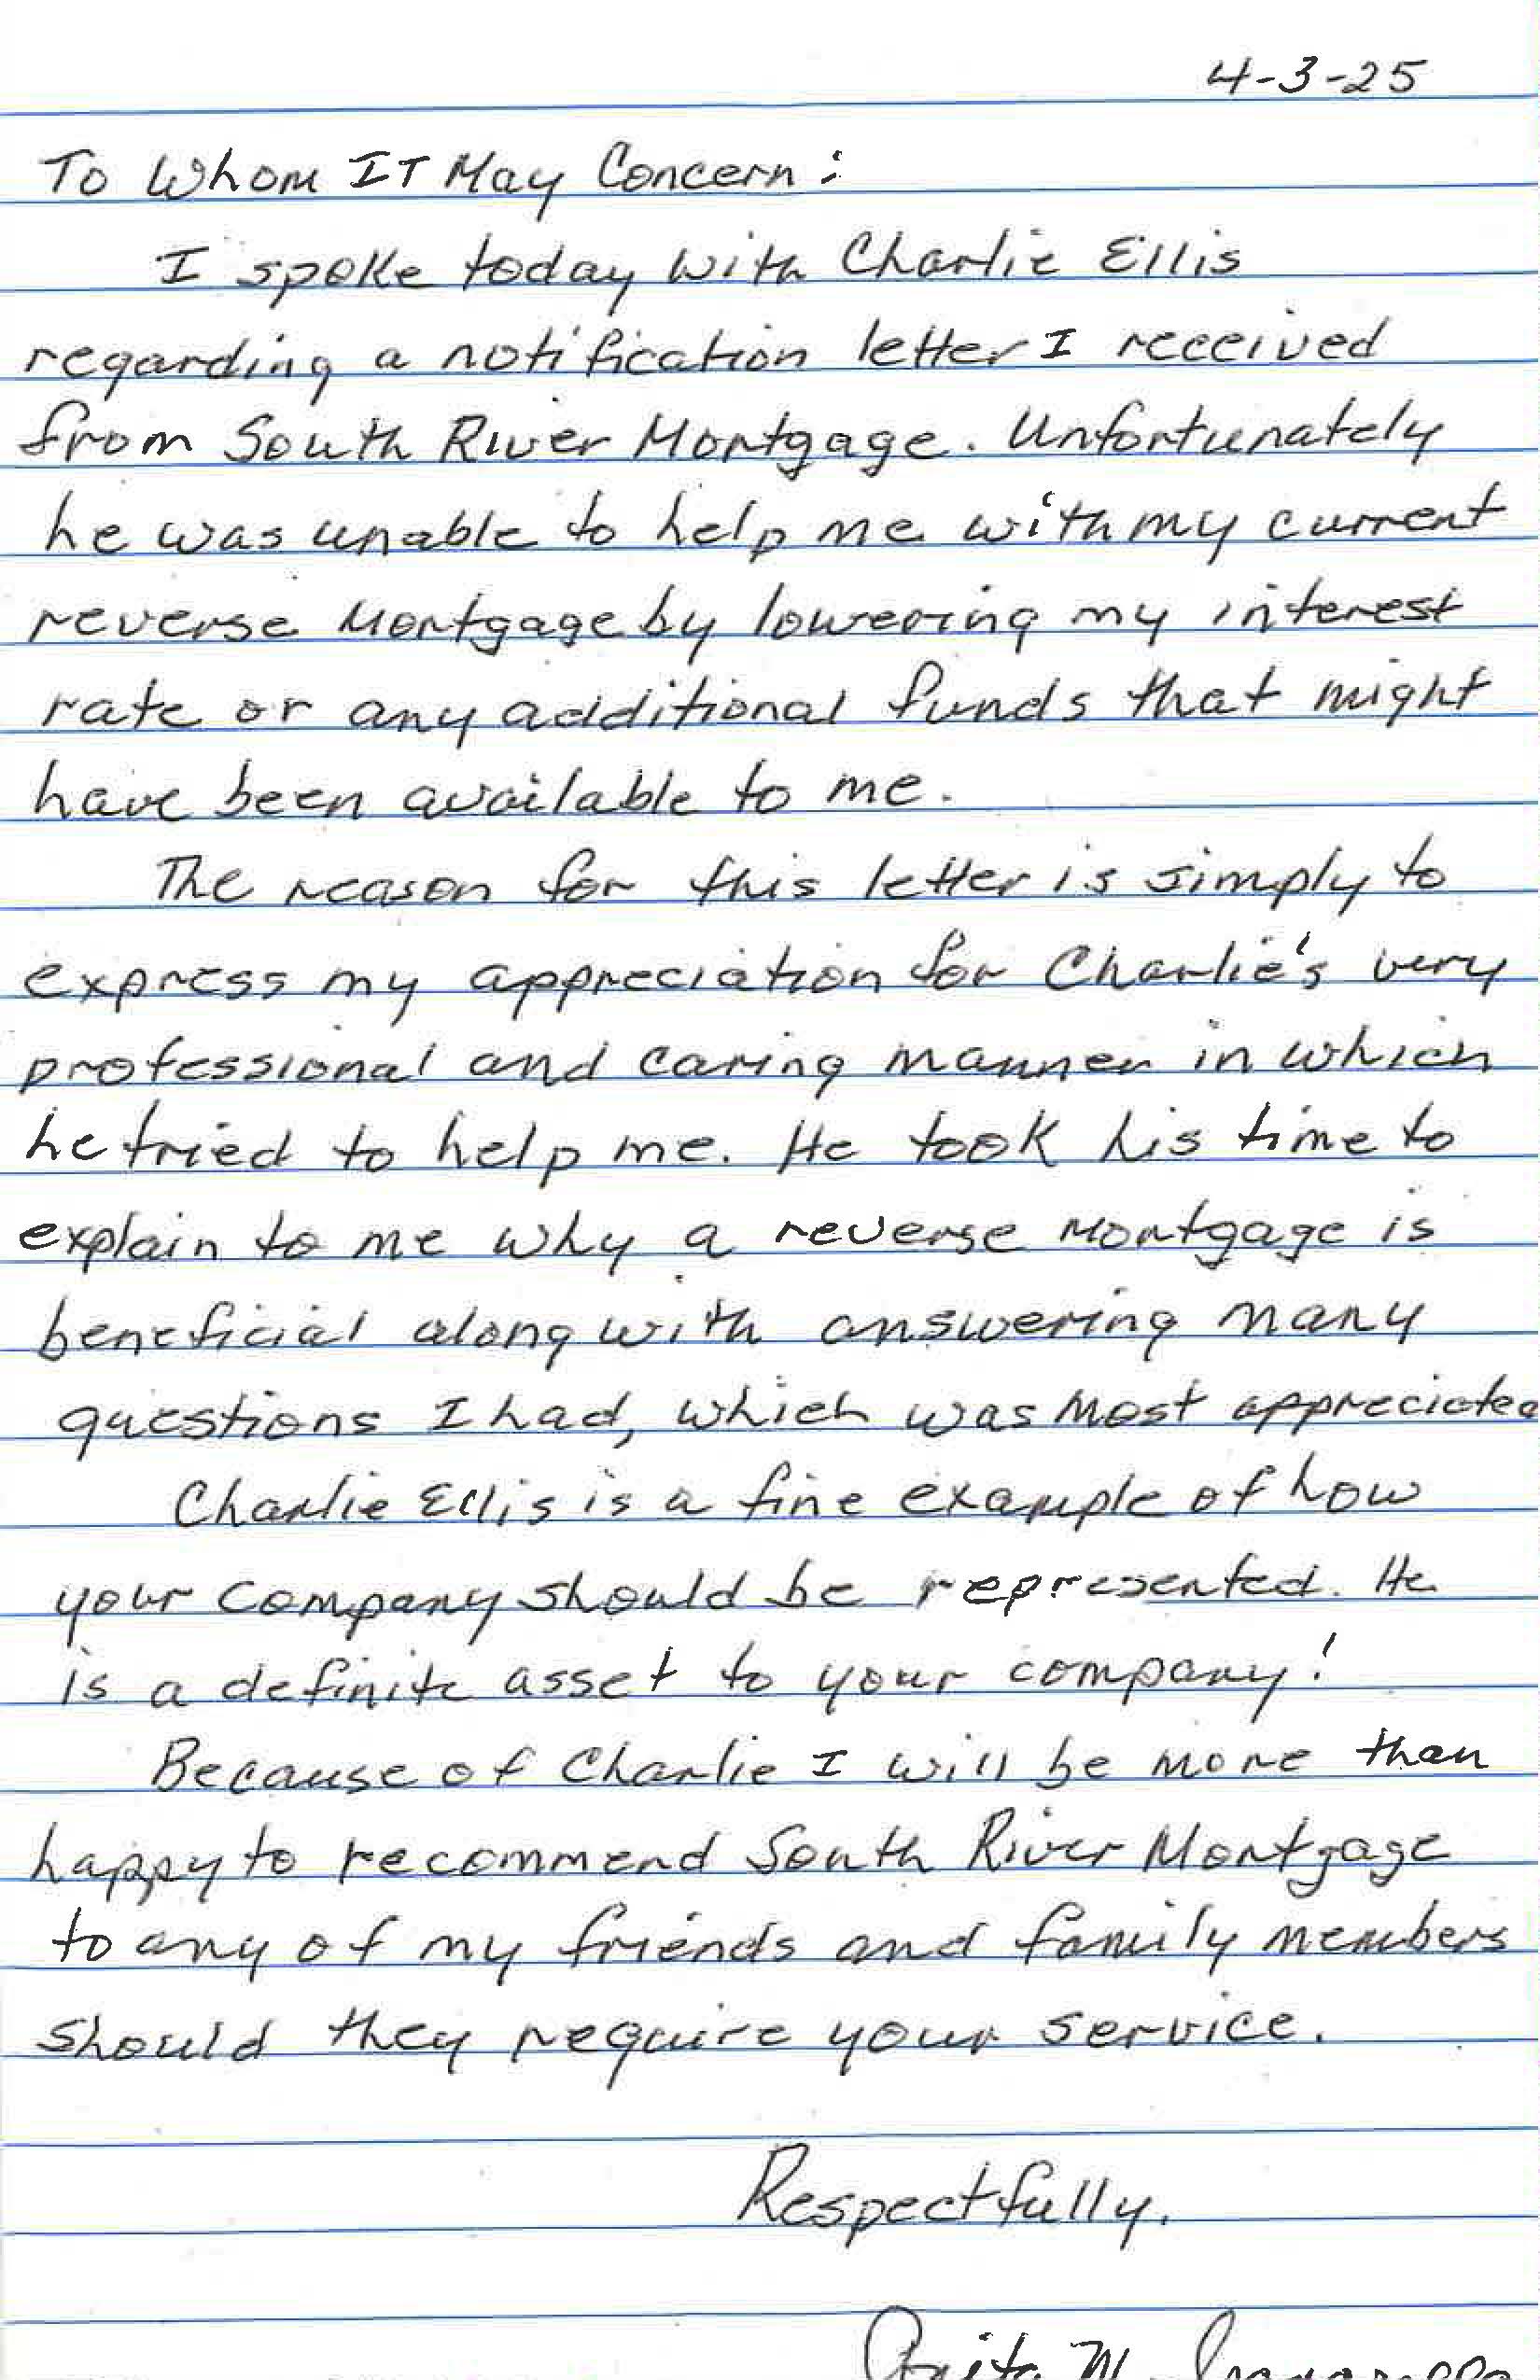 4-3-25
To Whom IT May Concern:
I spoke today with Charlie Ellis
regarding a notification letter I received
from South River Mortgage. Unfortunately
he was unable to help me with my current
reverse Mortgage by lowering my interest
rate or any additional funds that might
have been available to me.
The reason for this letter is simply to
express my appreciation for Charlie's very
professional and caring manner in which
he tried to help me. He took his time to
explain to me why a reverse Mortgage is
beneficial along with answering many
questions I had, which was most appreciated
Charlie Ellis is a fine example of how
your Company should be represented. He
is a definite asset to your company!
Because of Charlie I will be more than
happy to recommend South River Mortgage
to any of my friends and family members
should they require your service.
Respectfully.
Anita M.